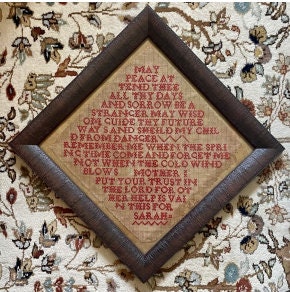 MAY
PEACE AT
TEND THEE
ALL THY DAYS
AND SORROW BE A
STRANGER MAY WISD
OM GUIDE THY FUTURE
WAYS AND SHEILD MY CHIL
D FROM DANGER
REMEMBER ME WHEN THE SPRI
NG TIME COME AND FORGET ME
NOT WHEN THE COLD WIND
BLOWS MOTHER
PUT YOUR TRUST IN
THE LORD FOR OT
HER HELP IS VAI
N THIS FOR
SARAH